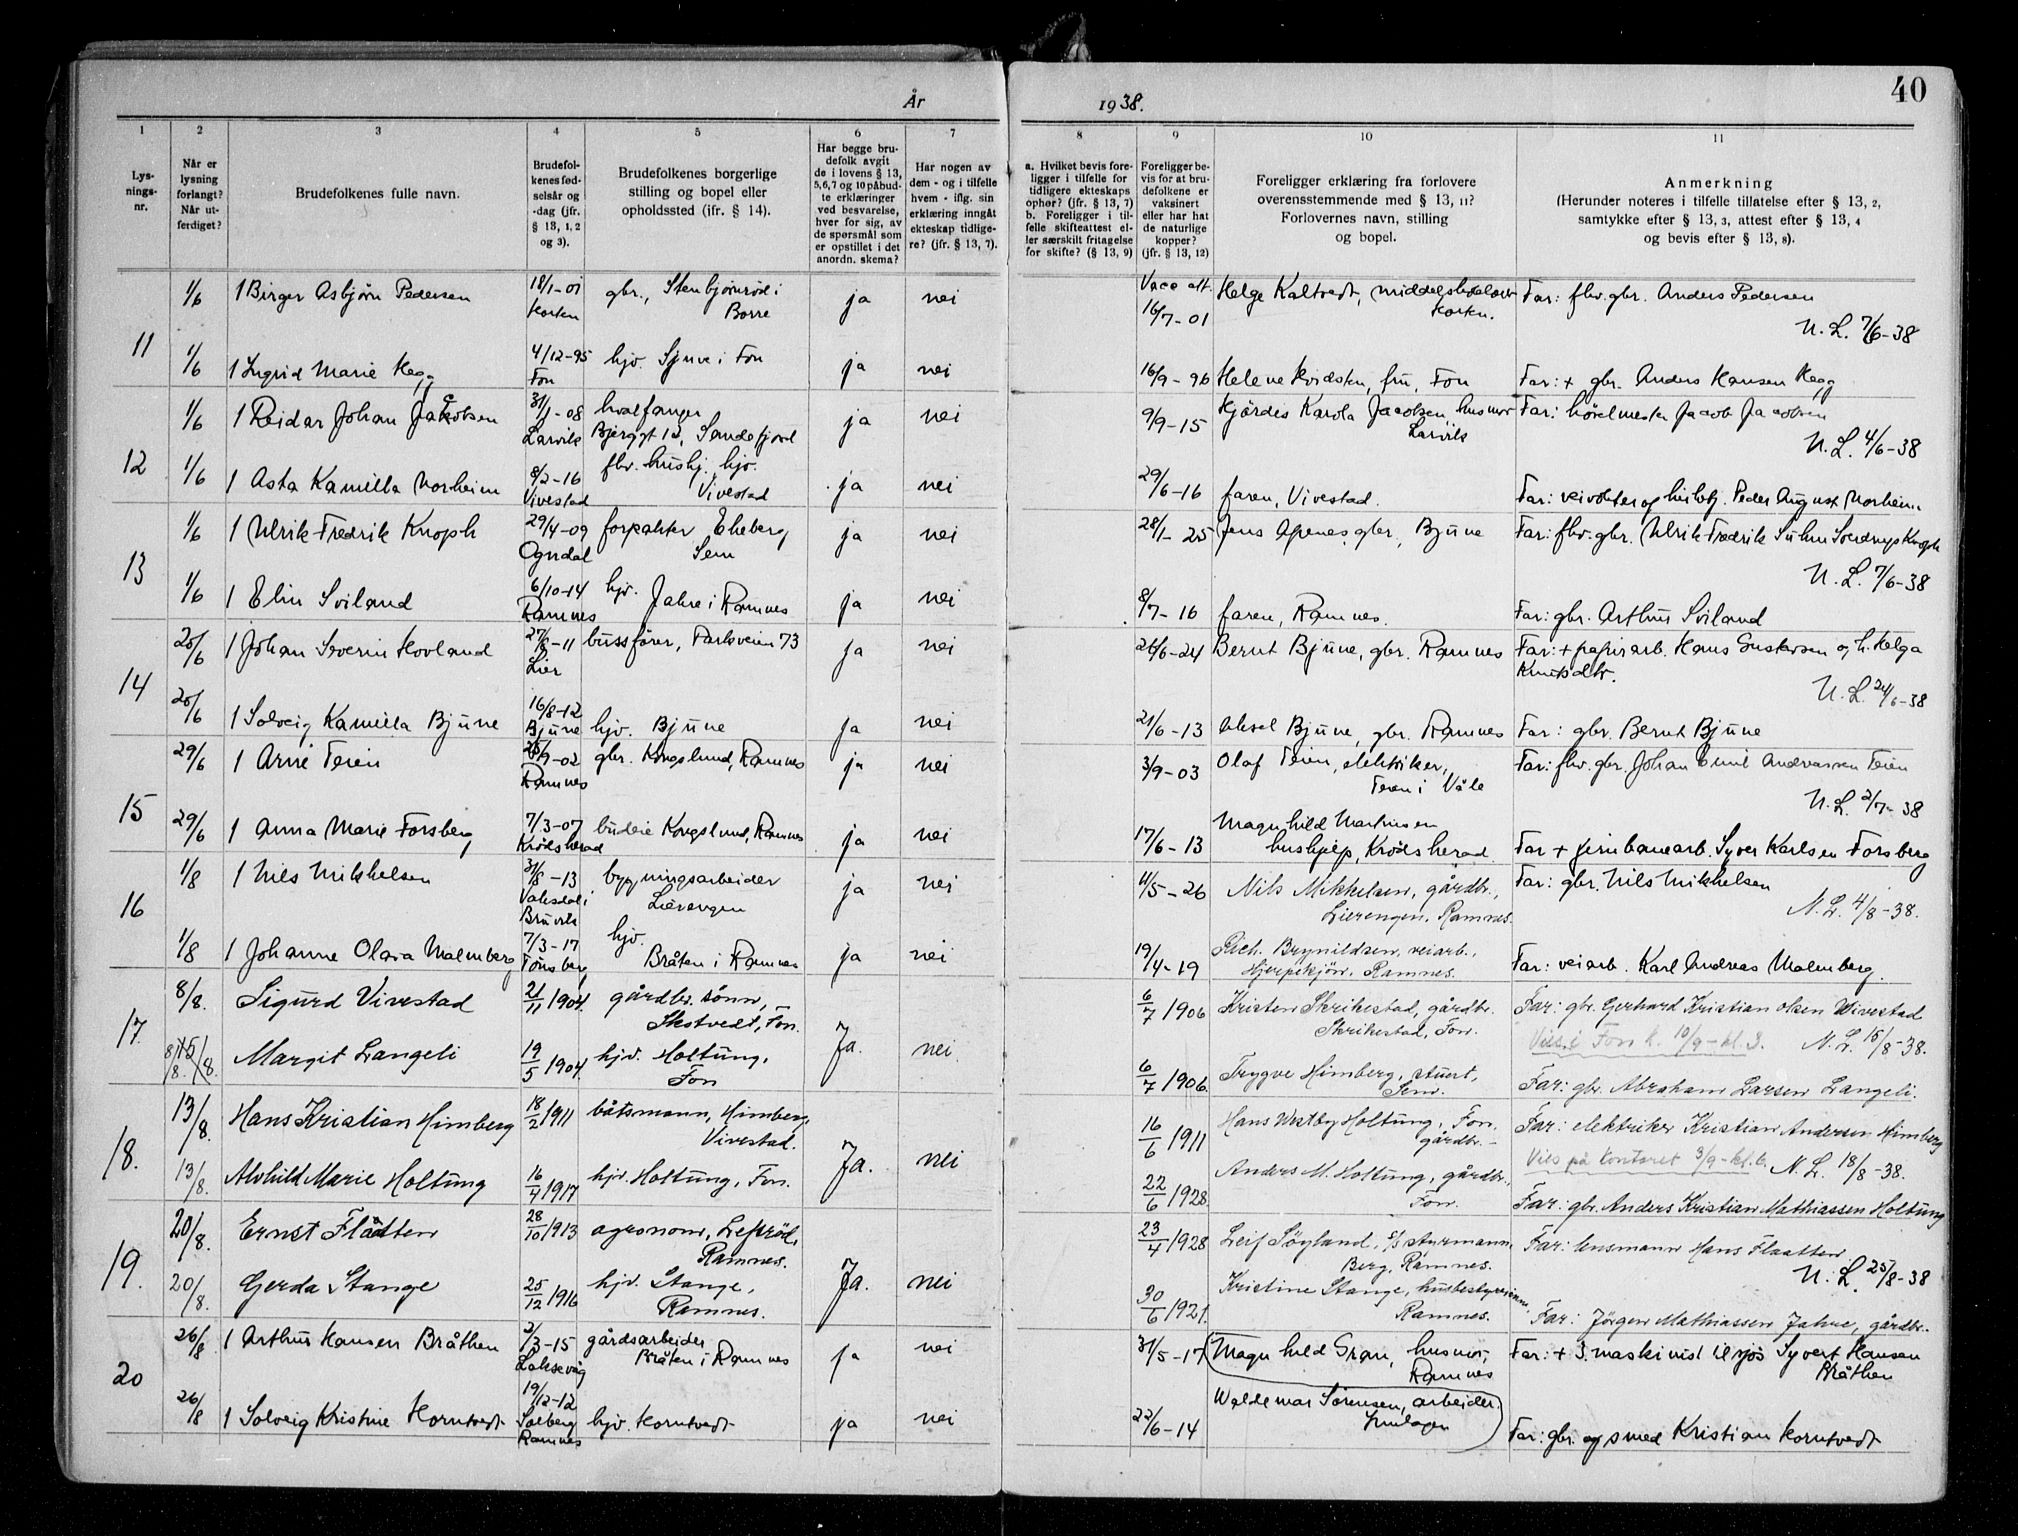 År 1938. 40
1 2 3 4 5 6 7 8 9 10 11
Lys-
nings-
nr.
Når er
lysning
forlangt?
Når ut-
ferdiget?
Brudefolkenes fulle navn.
Brudefol-
kenes fød-
selsår og
-dag (jfr.
§ 13, 1, 2
og 3).
Brudefolkenes borgerlige
stilling og bopel eller
opholdssted (ifr. § 14).
Har begge bru-
defolk avgit
de i lovens § 13,
5, 6, 7 og 10 påbud-
te erklæringer
ved besvarelse,
hver for sig, av
de spørsmål som
er opstillet i det
anordn. skema?
Har nogen av
dem - og i tilfelle
hvem - iflg. sin
erklæring inngåt
ekteskap tidlige-
re? (jfr. § 13, 7).
a. Hvilket bevis fore-
ligger i tilfelle for
tidligere ekteskaps
ophør? (jfr. § 13, 7)
b. Foreligger i til-
felle skifteattest el-
ler særskilt fritagelse
for skifte? (§ 13, 9)
Foreligger be-
vis for at bru-
defolkene er
vaksinert
eller har hat
de naturlige
kopper?
(jfr. § 13, 12)
Foreligger erklæring fra forlovere
overensstemmende med § 13, 11?
Forlovernes navn, stilling
og bopel.
Anmerkning
(Herunder noteres i tilfelle tillatelse efter § 13, 2,
samtykke efter § 13, 3, attest efter § 13, 4
og bevis efter § 13, 8).
11
1/6 1 Birger Asbjørn Pedersen 18/1-01 Horten gbr., Stenbjørnrød i Borre ja nei Vacc att. 16/7-01 Helge Kaltvedt, Horten. Far: fhv. gbr. Anders Pedersen
N.L. 7/6-38
1/6 1 Ingrid Marie Hegg 4/12-95 Fon hjv. Sjuve i Fon ja nei 16/9-96 Helene Kvidsten, fru, Fon Far: + gbr. Anders Hansen Hegg
12
1/6 1 Reidar Johan Jakobsen 31/1-08 Larvik hvalfanger Bjergt 12, Sandefjord ja nei 9/9-15 Hjördis Karola Jacobsen husmor Larvik Far: Jacob Jacobsen
N.L. 4/6-38
1/6 1 Asta Kamilla Norheim 8/2-16 Vivestad fhv. hushj. hjv. Vivestad ja nei 29/6-16 faren, Vivestad. Far: veivokter og Peder August Norheim
13
1/6 1 Ulrik Fredrik Knoph 29/4-09 Ogndal forpakter Ekeberg Sem ja nei 28/1-25 Jens Apenes, gbr, Bjune Far: fhv. gbr. Ulrik Fredrik Suhm Sverdrup Knoph
N.L. 7/6-38
1/6 1 Elin Sviland 6/10-14 Ramnes hjv. Jahre i Ramnes ja nei 8/7-16 faren, Ramnes. Far: gbr. Arthur Sviland
14
20/6 1 Johan Severin Hovland 27/6-11 Lier bussfører, Parkveien 73 ja nei 26/6-24 Bernt Bjune, gbr. Ramnes Far: + papirarb. Hans Gustavsen og h. Helga Knutsdtr.
N.L. 24/6-38
20/6 1 Solveig Kamilla Bjune 16/8-12 Bjune hjv. Bjune ja nei 21/6-13 Aksel Bjune, gbr. Ramnes Far: gbr. Bernt Bjune
15
29/6 1 Arne Feien 25/9-02 Ramnes gbr. Kongslund, Ramnes ja nei 3/9-03 Olaf Feien, elektriker, Feien i Våle Far: fhv. gbr. Johan Emil Andreassen Feien
N.L. 2/7-38
29/6 1 Anna Marie Forsberg 7/3-07 Krødsherad budeie Kongslund, Ramnes ja nei 17/6-13 Magnhild Martinsen hushjelp, Krødsherad Far + jernbanearb. Syver Karlsen Forsberg
16
1/8 1 Nils Mikkelsen 31/8-13 Vaksdal i Bruvik bygningsarbeider Lierengen ja nei 4/5-26 Nils Mikkelsen, gårdbr., Lierengen, Ramnes. Far: gbr. Nils Mikkelsen
N.L. 4/8-38.
1/8 1 Johanne Olava Malmberg 7/3-17 Tønsberg hjv. Bråten i Ramnes ja nei 19/4-19 Rich. Brynildsen, veiarb., Hjerpekjøn, Ramnes. Far: veiarb. Karl Andreas Malmberg.
17.
8/8. Sigurd Vivestad 21/11 1904. gårdbr. sønn, Skotvedt, Fon. Ja. nei. 6/7 1906 Kristen Skrikestad, gårdbr. Skrikestad, Fon. Far: gbr. Gerhard Kristian Olsen Wivestad
Vies i Fon k. 10/9-kl. 3. N.L. 15/8-38.
8/8. 15/8. Margit Langeli 19/5 1904. hjv. Holtung, Fon 6/7 1906. Trygve Himberg, stuert, Sem. Far: gbr. Abraham Larsen Langeli.
18.
13/8. Hans Kristian Himberg 18/2 1911 båtsmann, Himberg, Vivestad. Ja. nei 16/6 1911 Hans Westby Holtung, Fon. gårdbr. Far: elektriker Kristian Andersen Himberg
Vies på kontoret 3/9-kl. 6. N.L. 18/8-38.
13/8. Alvhild Marie Holtung 16/4 1917 hjv. Holtung, Fon. 22/6 1928. Anders M. Holtung, gårdbr., Fon. Far: gbr. Anders Kristian Mathiassen Holtung
19.
20/8. Ernst Flåtten 28/10 1913 agronom, Lefsrød, Ramnes. Ja. nei 23/4 1928 Leif Søyland, styrmann, Berg, Ramnes. Far: lensmann Hans Flaatten
N.L. 25/8-38
20/8. Gerda Stange 25/12 1916 hjv. Stange, Ramnes. 30/6 1921. Kristine Stange, husbestyrerinne, Ramnes. Far: Jörgen Mathiassen Jahre, gårdbr.
20
26/8 1 Arthur Hansen Bråthen 2/3-15 Laksevåg gårdsarbeider Bråten i Ramnes ja nei 31/5-17 Magnhild Gran, husmor, Ramnes Far: + 3. maskinist til sjøs Syvert Hansen Bråthen
26/8 1 Solveig Kristine Horntvedt 19/12-12 Solberg Ramnes hjv. Horntvedt ja nei 22/6-14 Waldemar Sørensen, arbeider. Far: gbr. og smed Kristian Horntvedt